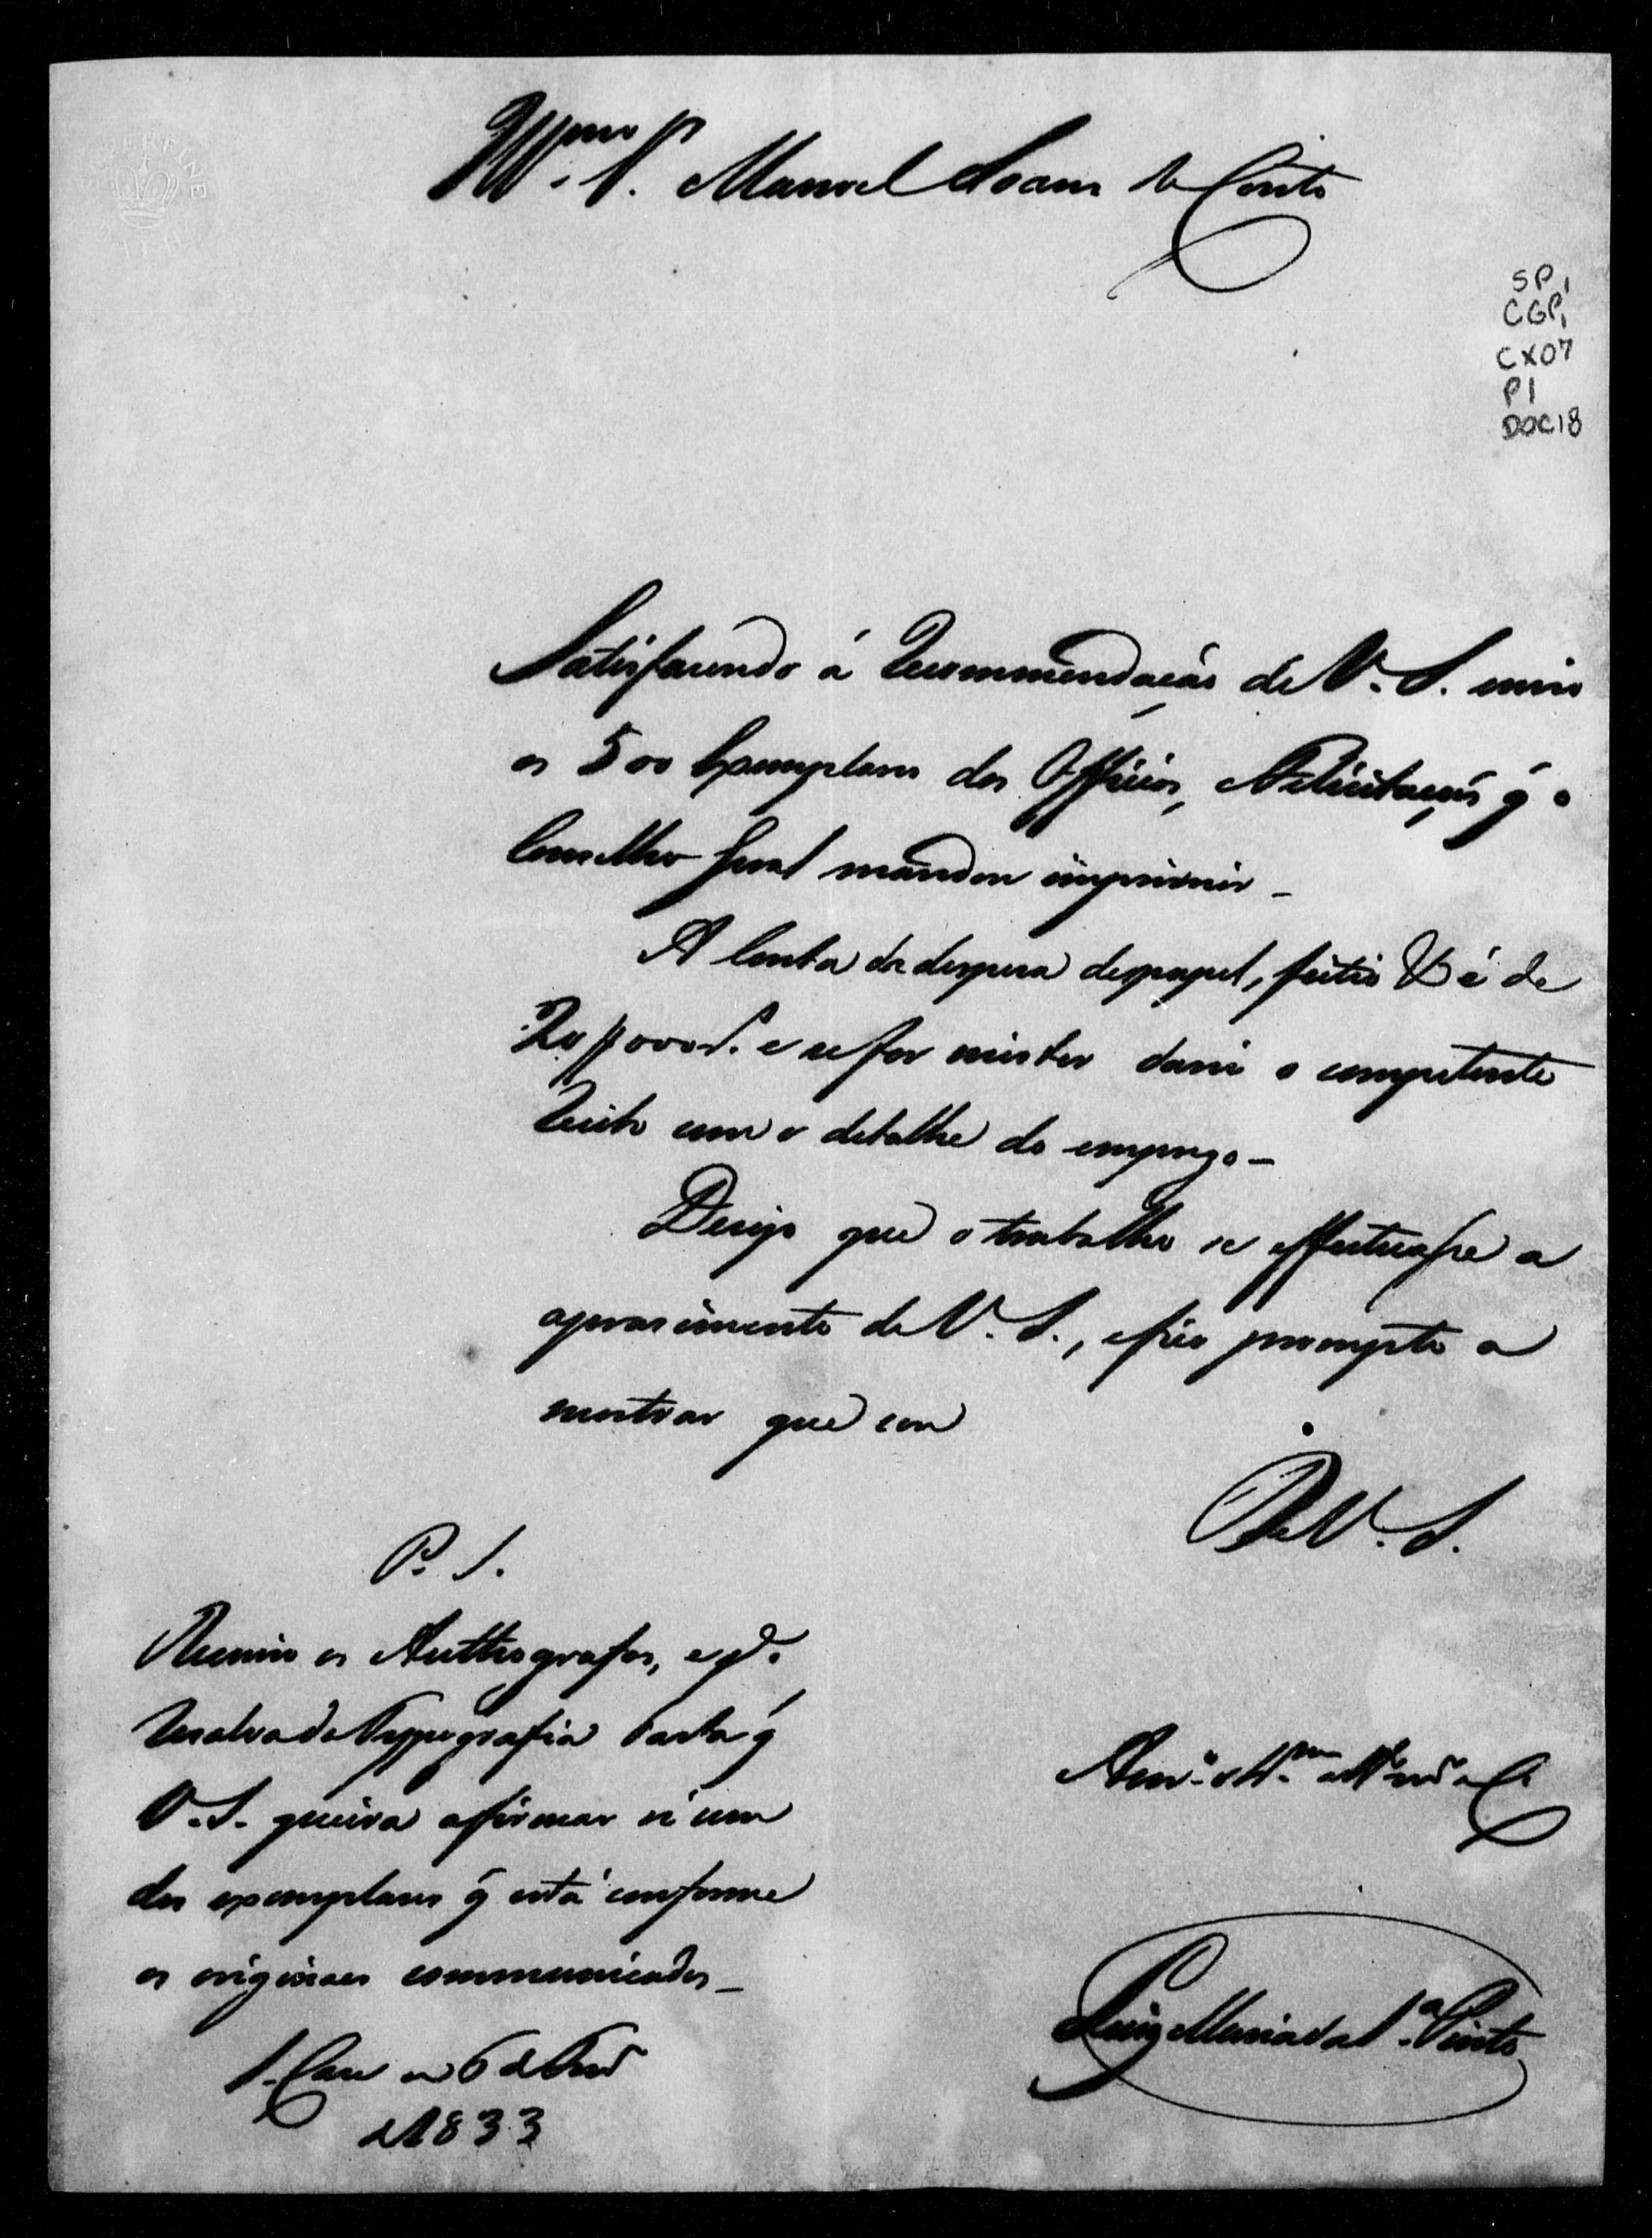 Ill.mo Sr. Manoel Soares do Couto
SP,
CGP,
CX07
P1
DOC18
Satisfazendo á Recommendação de V. S. envio
os 500 Exemplares dos Officios, e Felicitações q̃ o
Conselho Geral mandou imprimir_
A Conta da despesa de papel, feitio &. é de
e se for mister darei o competente
Recibo com o detalhe do emprego_
Desejo que o trabalho se effectuasse a
aprasimento de V. S., e fico prompto a
mostrar que sou
De V. S.
P. S.
Reenvio os Authografos, e p.a
resalva da Typografia basta q̃
V. S. queira afirmar n'um
dos exemplares q̃ está conforme
os originaes communicados_
S. Casa 6 de
d 1833
Luiz Maria da S.a Pinto